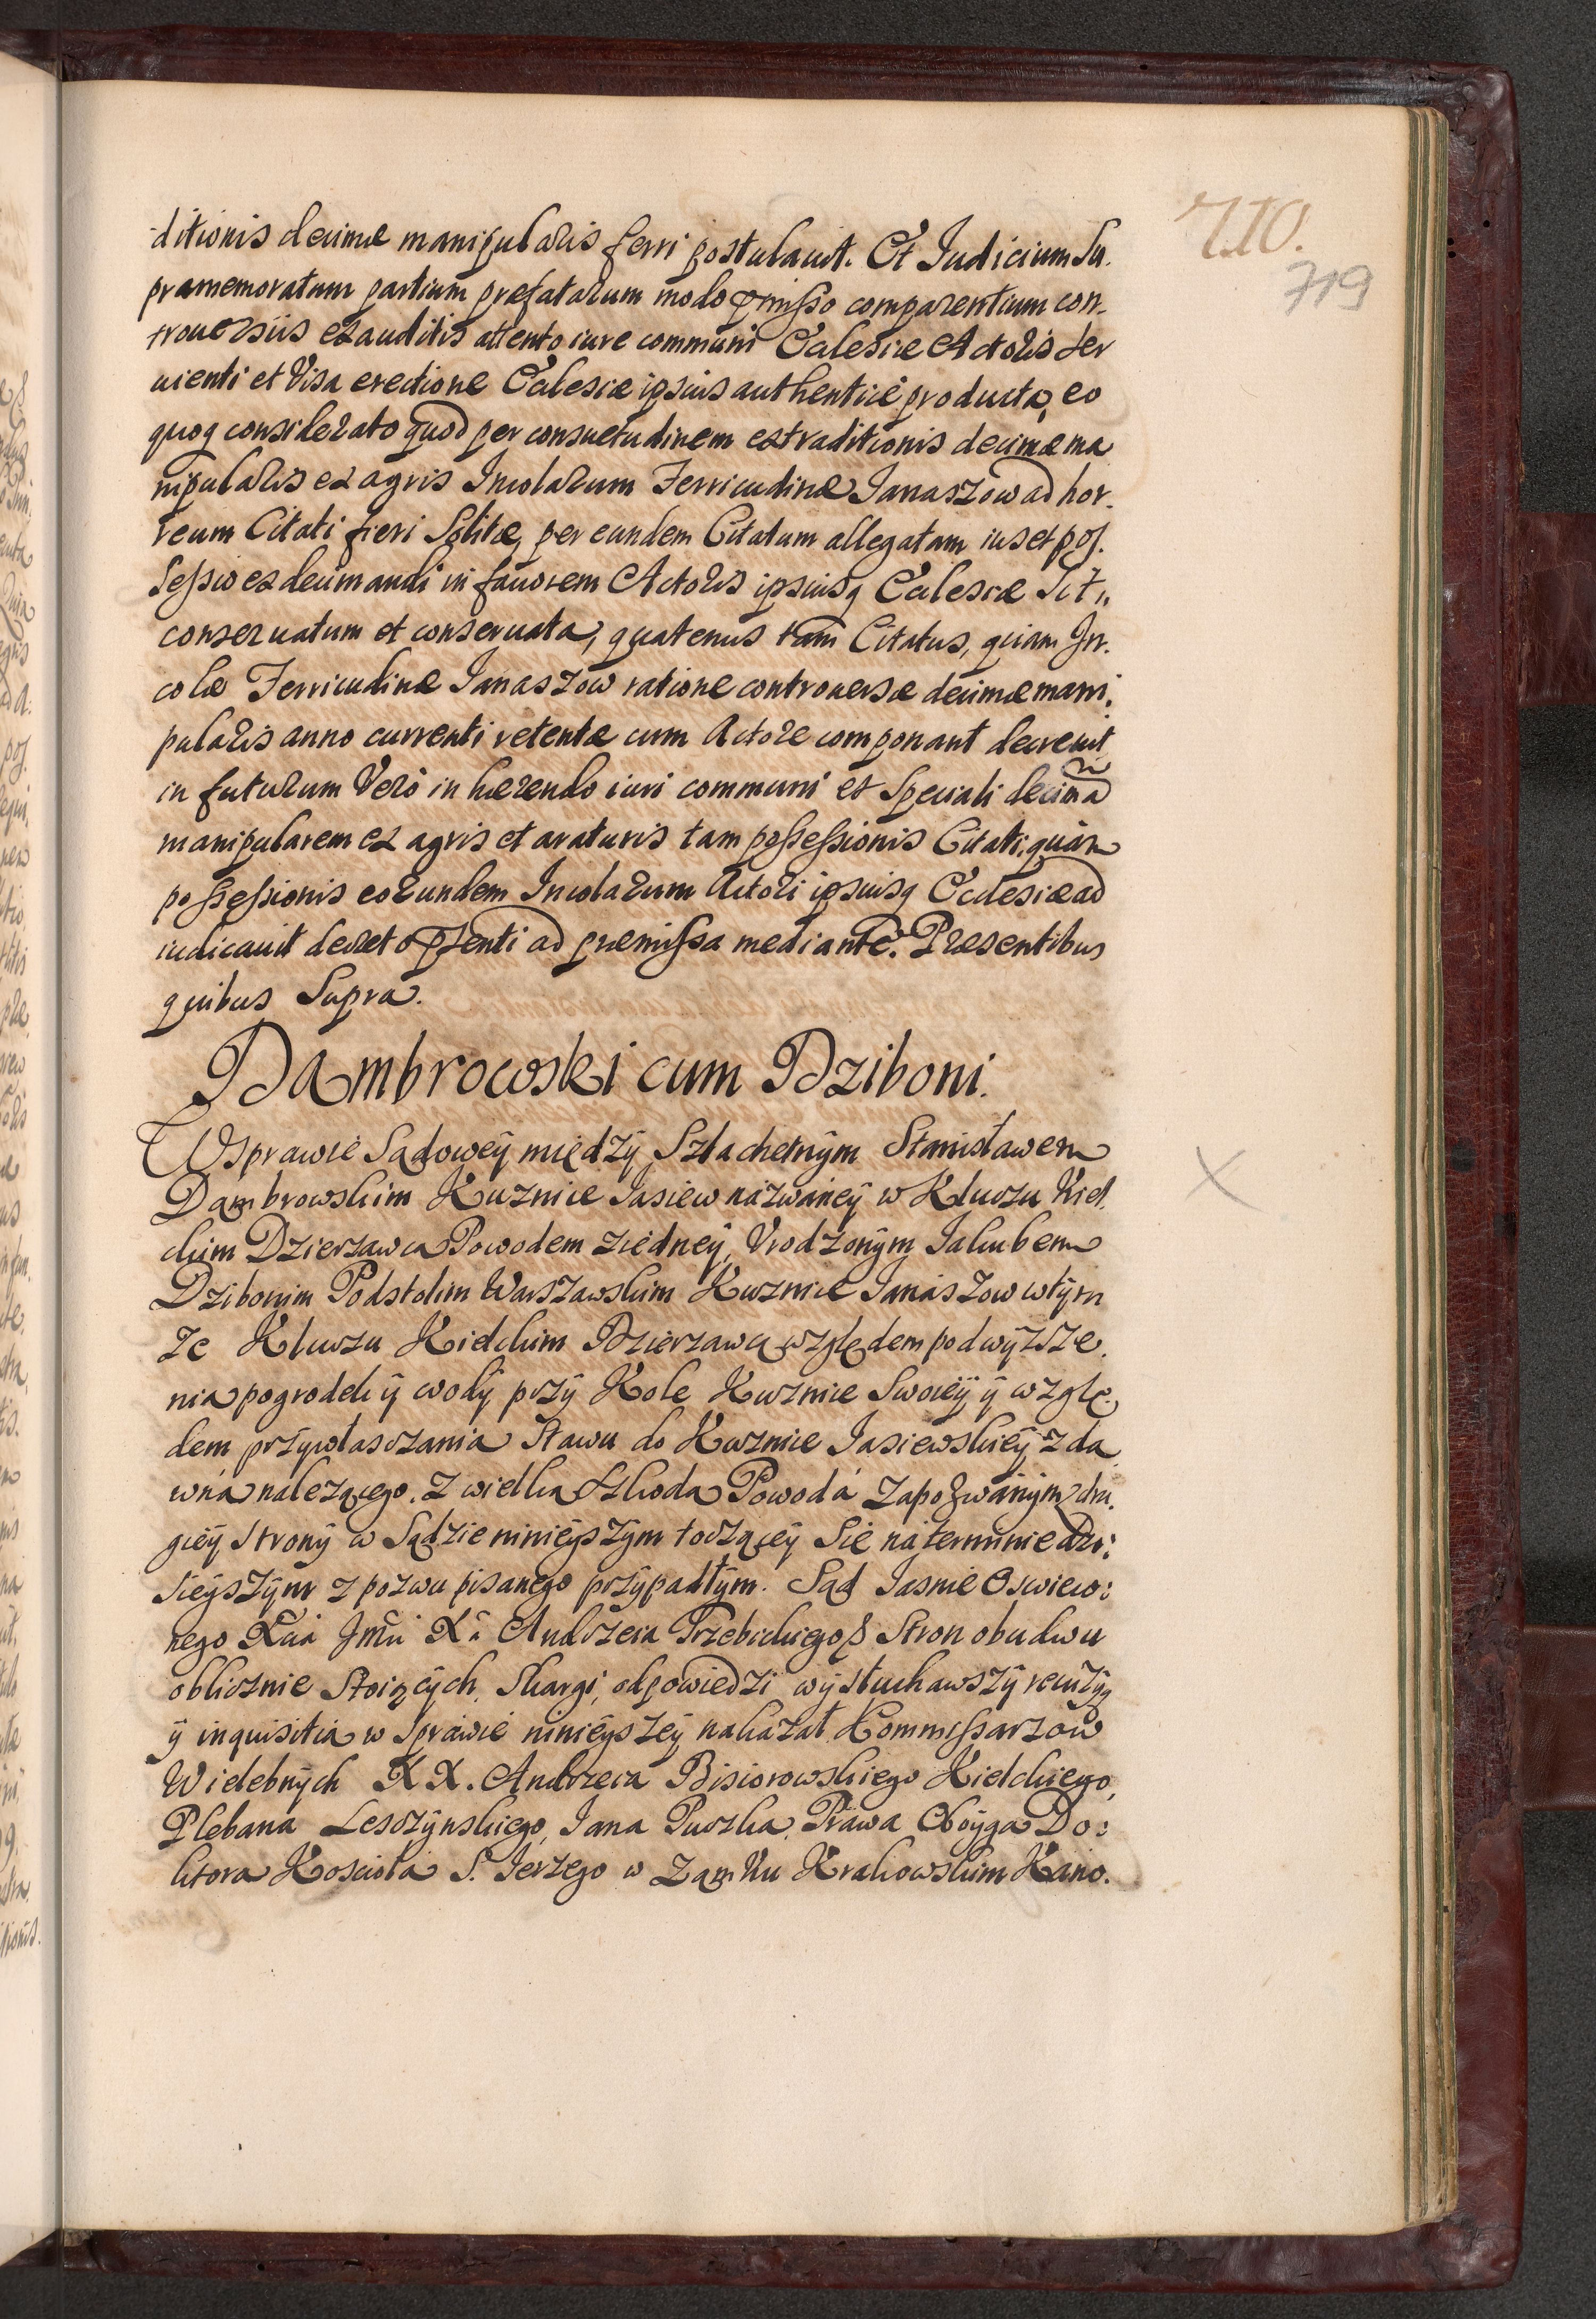 710.
719
ditionis decimæ manipularis ferri postulauit. Et Iudicium Su-
pramemoratum partium præfatarum modo præmisso comparentium con-
trouersiis exauditis attento iure communi Ecclesiæ Actoris ser
uienti et Visa erectione Ecclesiæ ipsius authenticè producta, eo
quoq considerato quod per consuetudinem extraditionis decimæ ma
nipularis ex agris Incolarum Ferricudinæ Ianaszow ad hor-
reum Citati fieri Solitæ, per eundem Citatum allegatam ius et pos-
Sessio ex decimandi in fauorem Actoris ipsiusq Ecclesiæ Sit
conseruatum et conseruata, quatenus tam Citatus, quam In-
colæ Ferricudinæ Ianaszow ratione controuersæ decimæ mani-
pularis anno currenti retentæ cum Actore componant decreuit
in futurum Verò in hærendo iuri communi et Speciali decimã
manipularem ex agris et araturis tam possessionis Citati, quàm
possessionis eorundem Incolarum Actori ipsiusq Ecclesiæ ad
iudicauit decreto præsenti ad præmissa mediante. Præsentibus
quibus Supra.
Dąmbrowski cum Dziboni.
W Sprawie Sądowey między Szlachetnym Stanisławem
Dąmbrowskim Kuznice Jasiew názwáney w Kluczu Kiel-
ckim Dzierzawcą Powodem z iedney, Vrodzonym Jakubem
Dzibonim Podstolim Warszawskim Kuznice Janászow w tym
ze Kluczu Kielckim Dzierzawcą względem podwyzsze-
nia pogrodek y wody przy Kole Kuznice Swoiey y wzglę-
dem przywłasczania Stawu do Kuznice Jasiewskiey z da
wná nalezącego, z wielką Szkodą Powodá zapozwánym z dru-
giey Strony w Sądzie ninieyszym toczącey Się ná terminie dzi-
Sieyszym z pozwu pisanego przypadłym. Sąd Jasnie Oswieco-
nego Xcia Jmci Xa Andrzeia Trzebickiego Stron obudwu
oblicznie Stoiących, Skargi, odpowiedzi wysłuchawszy rewizyą
y inquisitią w Sprawie ninieyszey nakazał. Kommissarzow
Wielebnych XX. Andrzeia Bisiorowskiego Kielckiego,
Plebana Lesczynskiego, Jana Puczka, Práwa Oboyga Do-
ktora Kosciołá S. Jerzego w Zamku Krakowskim Kano-